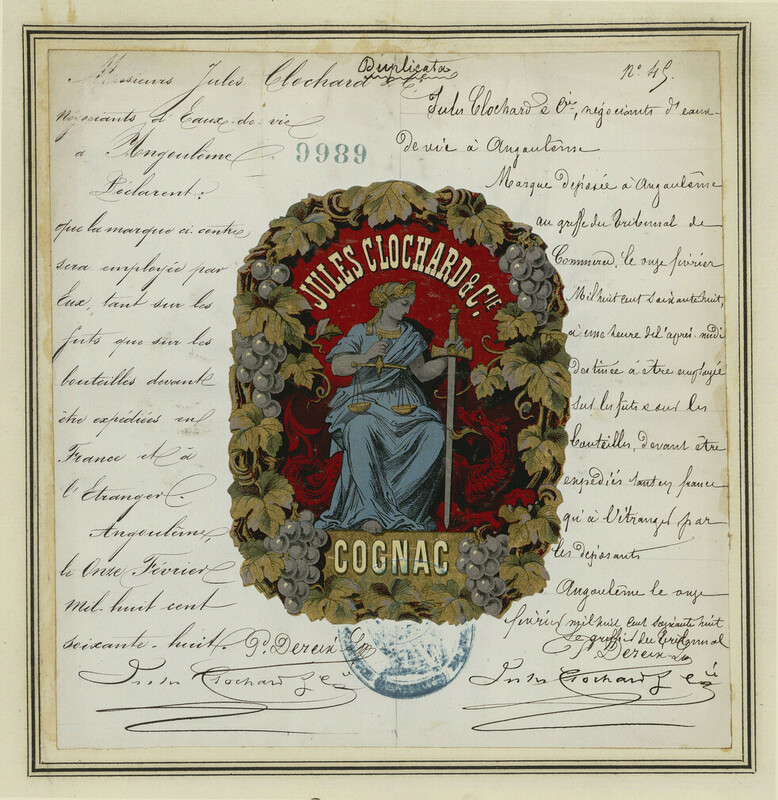 Duplicata
Messieurs Jules Clochard & Cie
négociants d'Eaux-de-vie
à Angoulême
Déclarent:
que la marque ci contre
sera employée par
Eux, tant sur les
futs que sur les
bouteilles devant
être expédiées en
France et à
l'Etranger.
Angoulême,
le Onze Février
Mil-huit cent
soixante-huit.
Jules Clochard & Cie
9989
JULES CLOCHARD & CIE.
COGNAC
No. 45.
Jules Clochard & Cie, négociants d'eaux-
de vie à Angoulême
Marque déposée à Angoulême
au greffe du Tribunal de
Commerce, le onze février
Mil huit cent soixante huit,
à une heure de l'après-midi
destinée à être employée
sur les fûts & sur les
bouteilles, devant être
expédiés tant en france
qu'à l'étranger par
les déposants
Angoulême le onze
février mil huit cent soixante huit
Le greffier du Tribunal
Jules Clochard & Cie